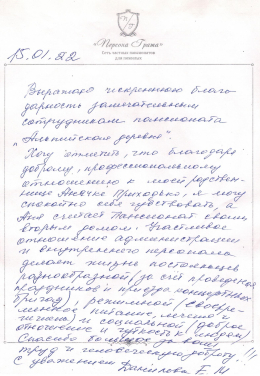 «Персона Грата»
Сеть частных пансионатов
для пожилых
15.01.22
Выражаю искреннюю благо
дарность замечательным
сотрудникам пансионата
"Альпийская деревня".
Хочу отметить, что благодаря
доброму, профессиональному
отношению к моей родствен-
нице Анечке Приходько, я могу
спокойно себя чувствовать, а
Аня считает Пансионат своим
вторым домом. Участливое
отношение администрации
и внутреннего персонала
делают жизнь постояльцев
разнообразной (за счёт проведения
праздников и приезда концертных
бригад), режимной (своевре-
менное питание, лечение и
гигиена) и социальной (доброе
отношение и чуткость к людям)
Спасибо большое за ваш
труд и человеческую доброту!!!
С уважением Данилова Е. М